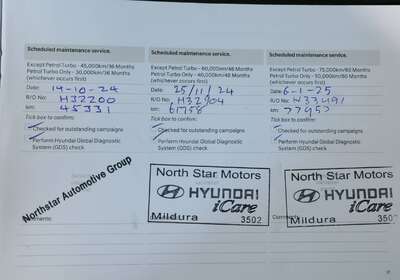 Scheduled maintenance service.
Except Petrol Turbo - 45,000km/36 Months
Petrol Turbo Only - 30,000km/36 Months
(whichever occurs first)
Date: 14-10-24
R/O No: H32200
km: 45331
Tick box to confirm:
Checked for outstanding campaigns
Perform Hyundai Global Diagnostic
System (GDS) check
Northstar Automotive Group
Comments:
Scheduled maintenance service.
Except Petrol Turbo - 60,000km/48 Months
Petrol Turbo Only - 40,000km/48 Months
(whichever occurs first)
Date: 25/11/24
R/O No: H32904
km: 61758
Tick box to confirm:
Checked for outstanding campaigns
Perform Hyundai Global Diagnostic
System (GDS) check
North Star Motors
HYUNDAI
iCare
Mildura 3502
Scheduled maintenance service.
Except Petrol Turbo - 75,000km/60 Months
Petrol Turbo Only - 50,000km/60 Months
(whichever occurs first)
Date: 6-1-25
R/O No: H33491
km:
Tick box to confirm:
Checked for outstanding campaigns
Perform Hyundai Global Diagnostic
System (GDS) check
North Star Motors
HYUNDAI
iCare
Mildura 3502